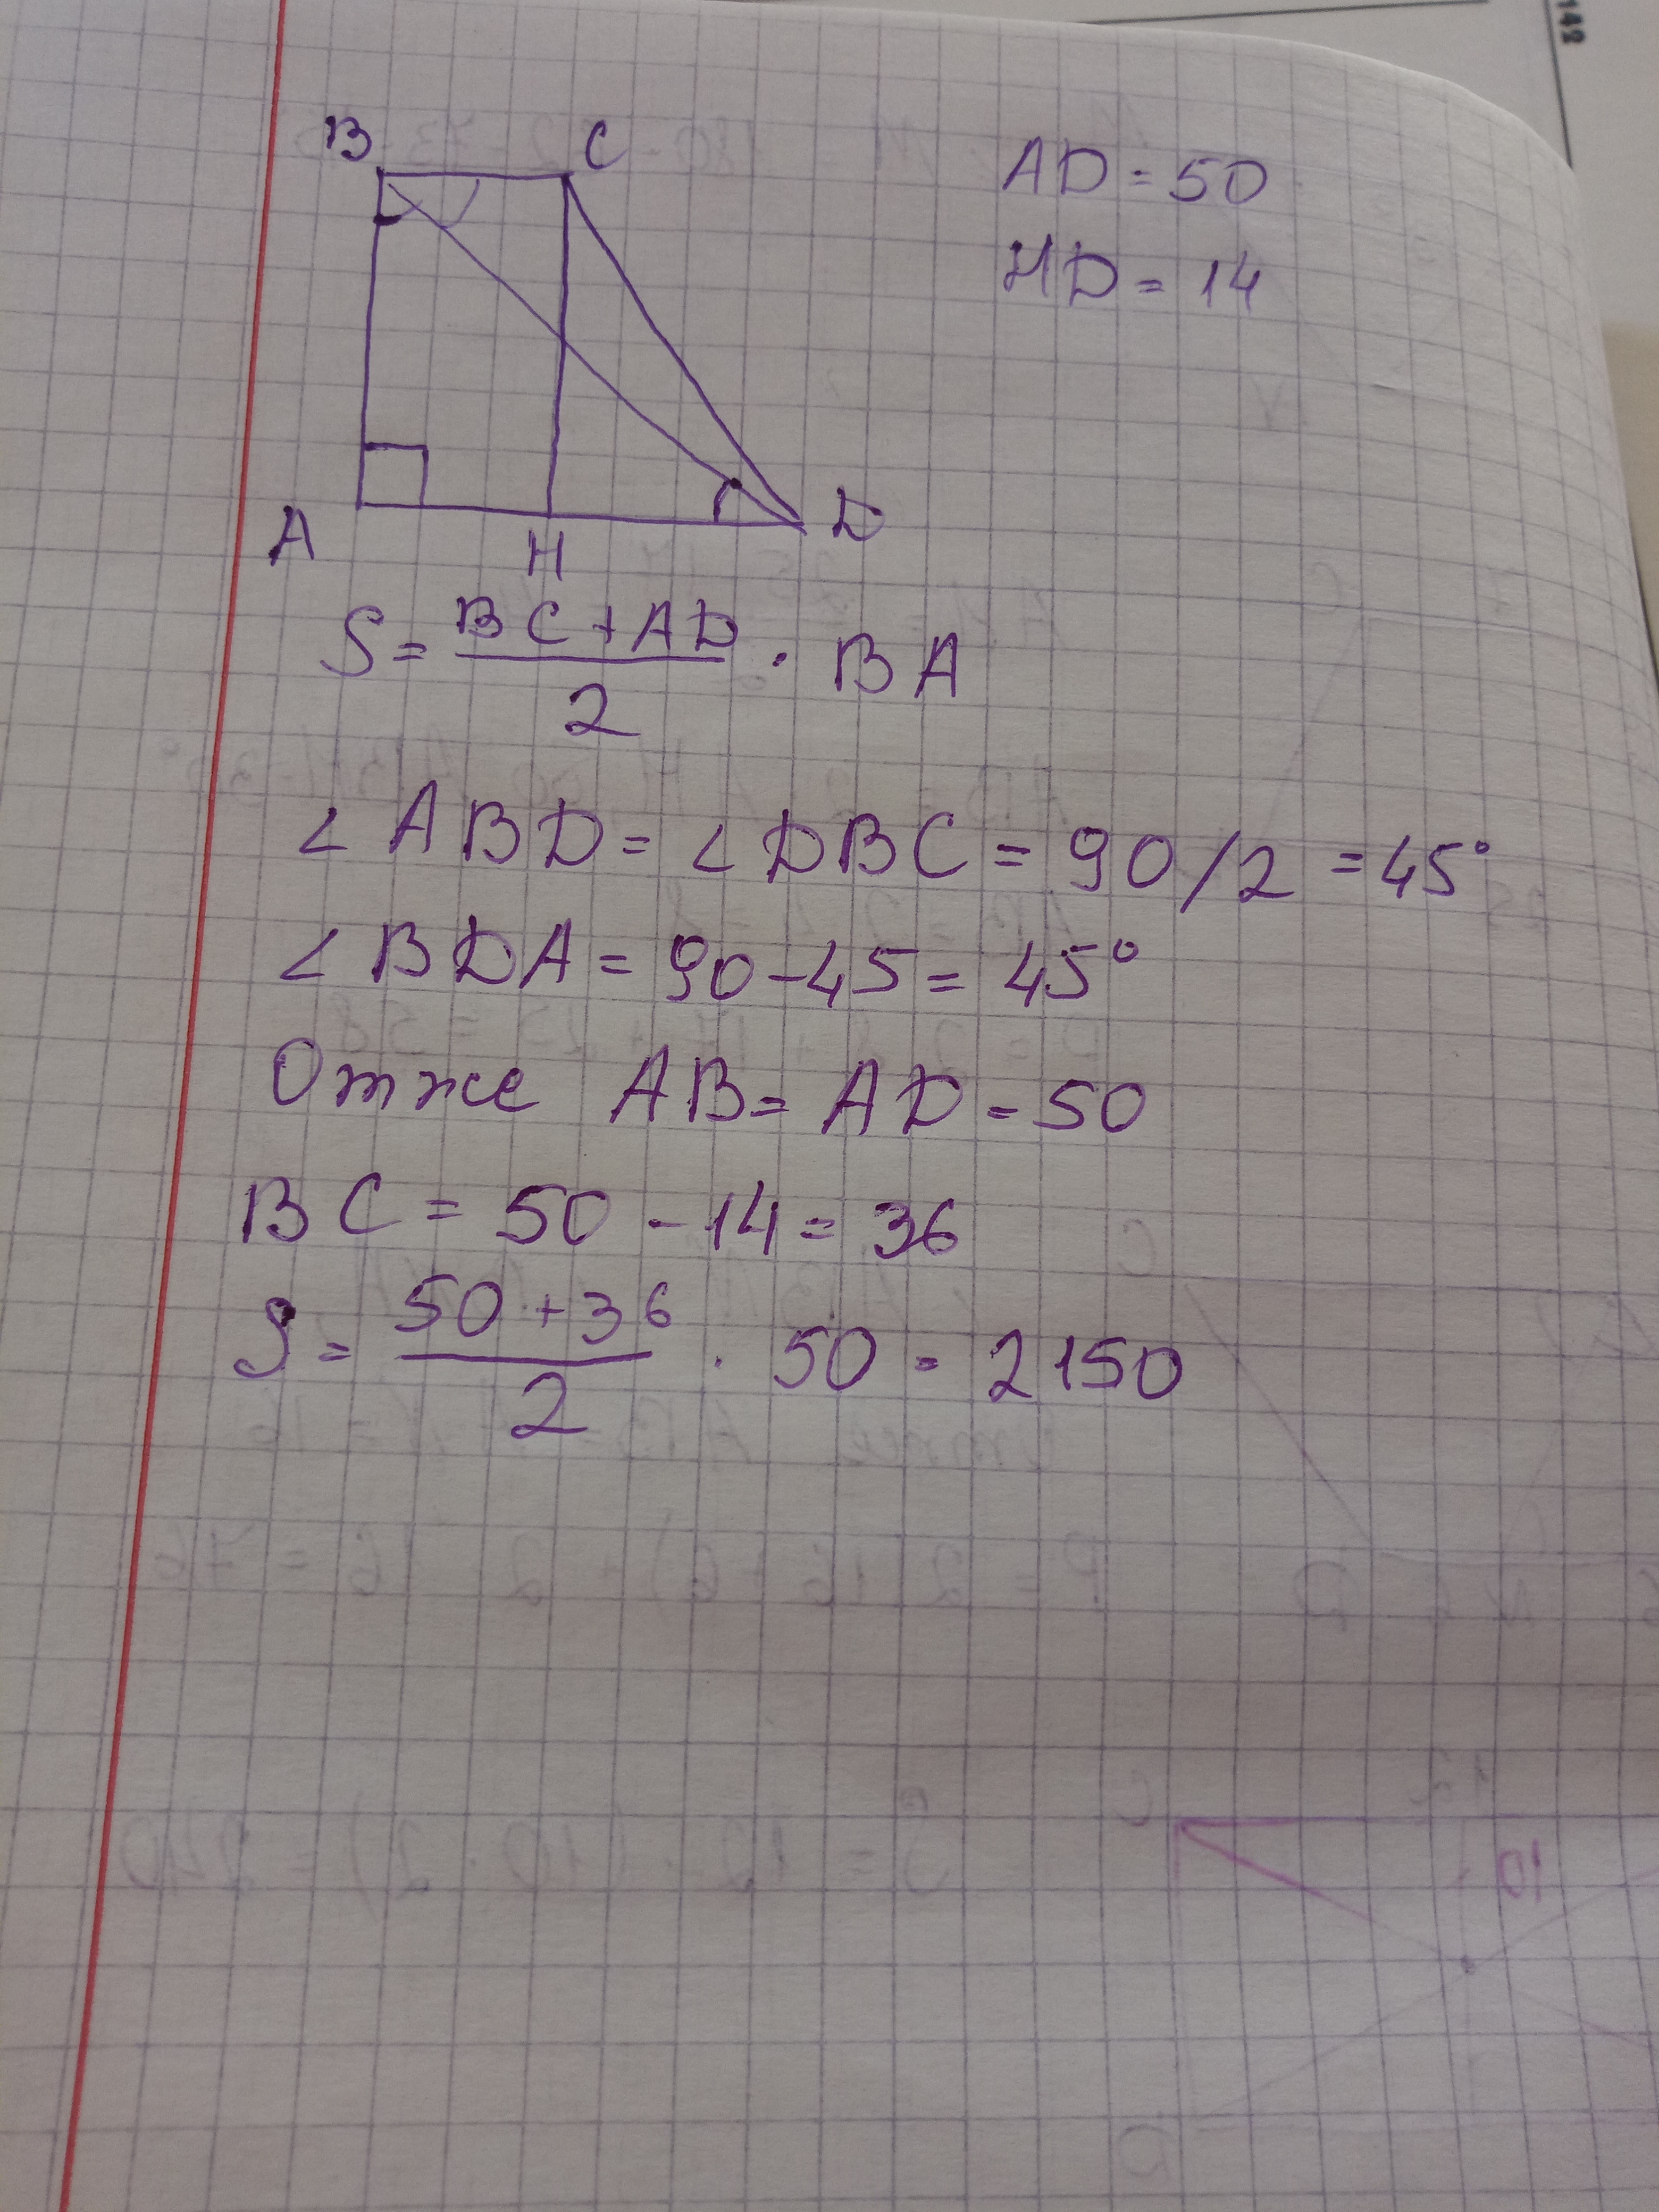 142
B C
AD = 50
HD = 14
A H D
S = (BC + AD)/2 · BA
∠ ABD = ∠ DBC = 90/2 = 45°
∠ BDA = 90 - 45 = 45°
Отже AB = AD = 50
BC = 50 - 14 = 36
S = (50 + 36)/2 · 50 = 2150